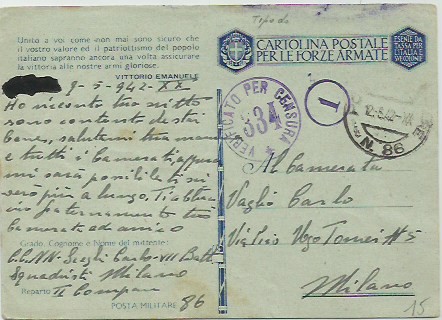 Unito a voi come non mai sono sicuro che
il vostro valore ed il patriottismo del popolo
italiano sapranno ancora una volta assicurare
la vittoria alle nostre armi gloriose.
VITTORIO EMANUELE
9-5-942-XX
Ho ricevuto tuo scritto
sono contento che stai
bene, salutami tua mamma
e tutti i Camerati, appena
mi sarà possibile ti scri
verò più a lungo. Ti abbraccio
fraternamente tuo
Camerata ed amico
Grado, Cognome e Nome del mittente:
C.C.N.N. Carlo-VII Batt.
Squadristi Milano
Reparto II Compan
POSTA MILITARE 86
CARTOLINA POSTALE
PER LE FORZE ARMATE
ESENTE DA
TASSA PER
L'ITALIA E
COLONIE
VERIFICATO PER CENSURA
334
1
N. 86
Al Camerata
Vaglio Carlo
Viale Ugo Tommei #5
Milano
15